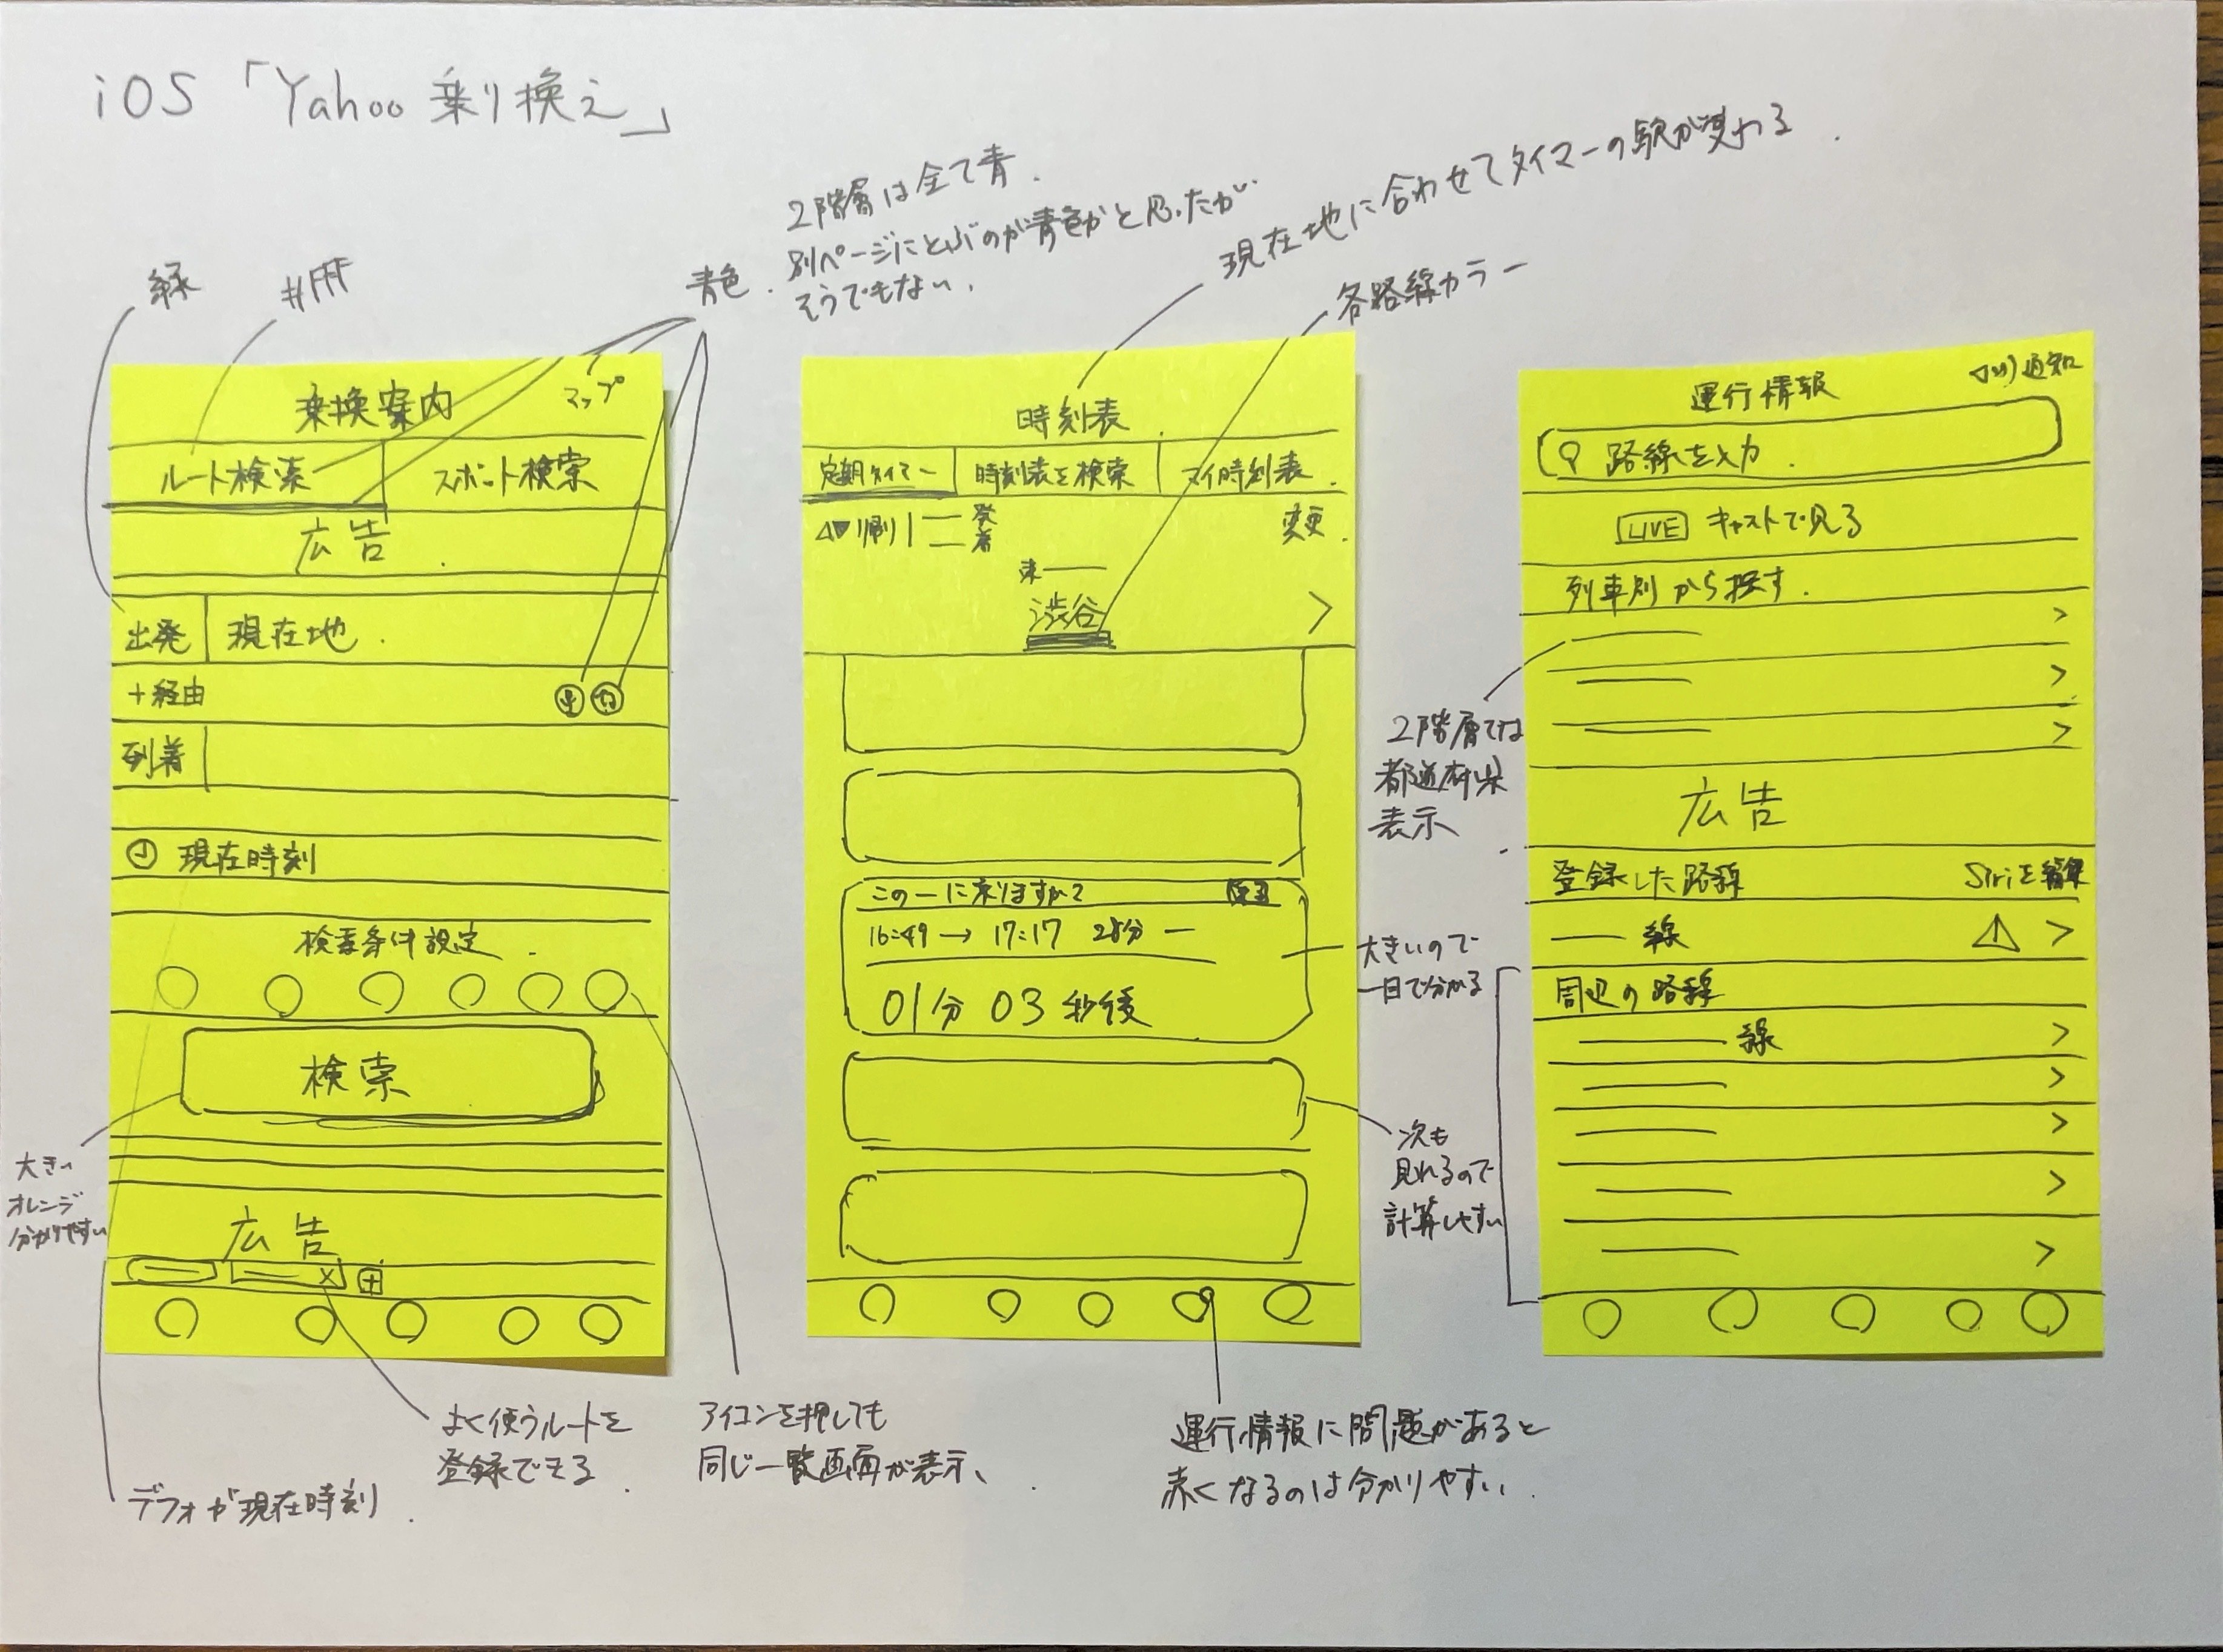 iOS「Yahoo 乗り換え」
2階層は全て青.
別ページにとぶのが青色かと思ったが
そうでもない.
現在地に合わせてタイマーの駅が変わる.
各路線カラー
緑
#fff
青色.
乗換案内
マップ
ルート検索
スポット検索
広告
出発
現在地.
+経由
列着
現在時刻
検索条件設定.
検索
広告
大きい
オレンジ
分かりやすい
デフォが現在時刻.
よく使うルートを
登録できる.
アイコンを押しても
同じ一覧画面が表示、
時刻表
定期タイマー
時刻表を検索
マイ時刻表.
発
着
変更.
渋谷
>
この一に乗りますか?
16:49→17:17 28分 ー
01分 03秒後
大きいので
一目で分かる
次も
見れるので
計算しやすい
運行情報に問題があると
赤くなるのは分かりやすい.
運行情報
通知
路線を入力.
LIVE キャストで見る
列車別から探す.
>
>
>
2階層では
都道府県
表示
広告
登録した路線
Siriを編集
線
>
周辺の路線
線
>
>
>
>
>